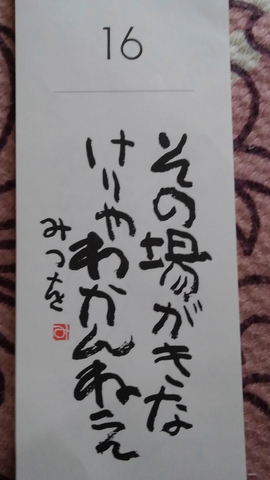 16
その場がきな
けりゃわかんねえ
みつを